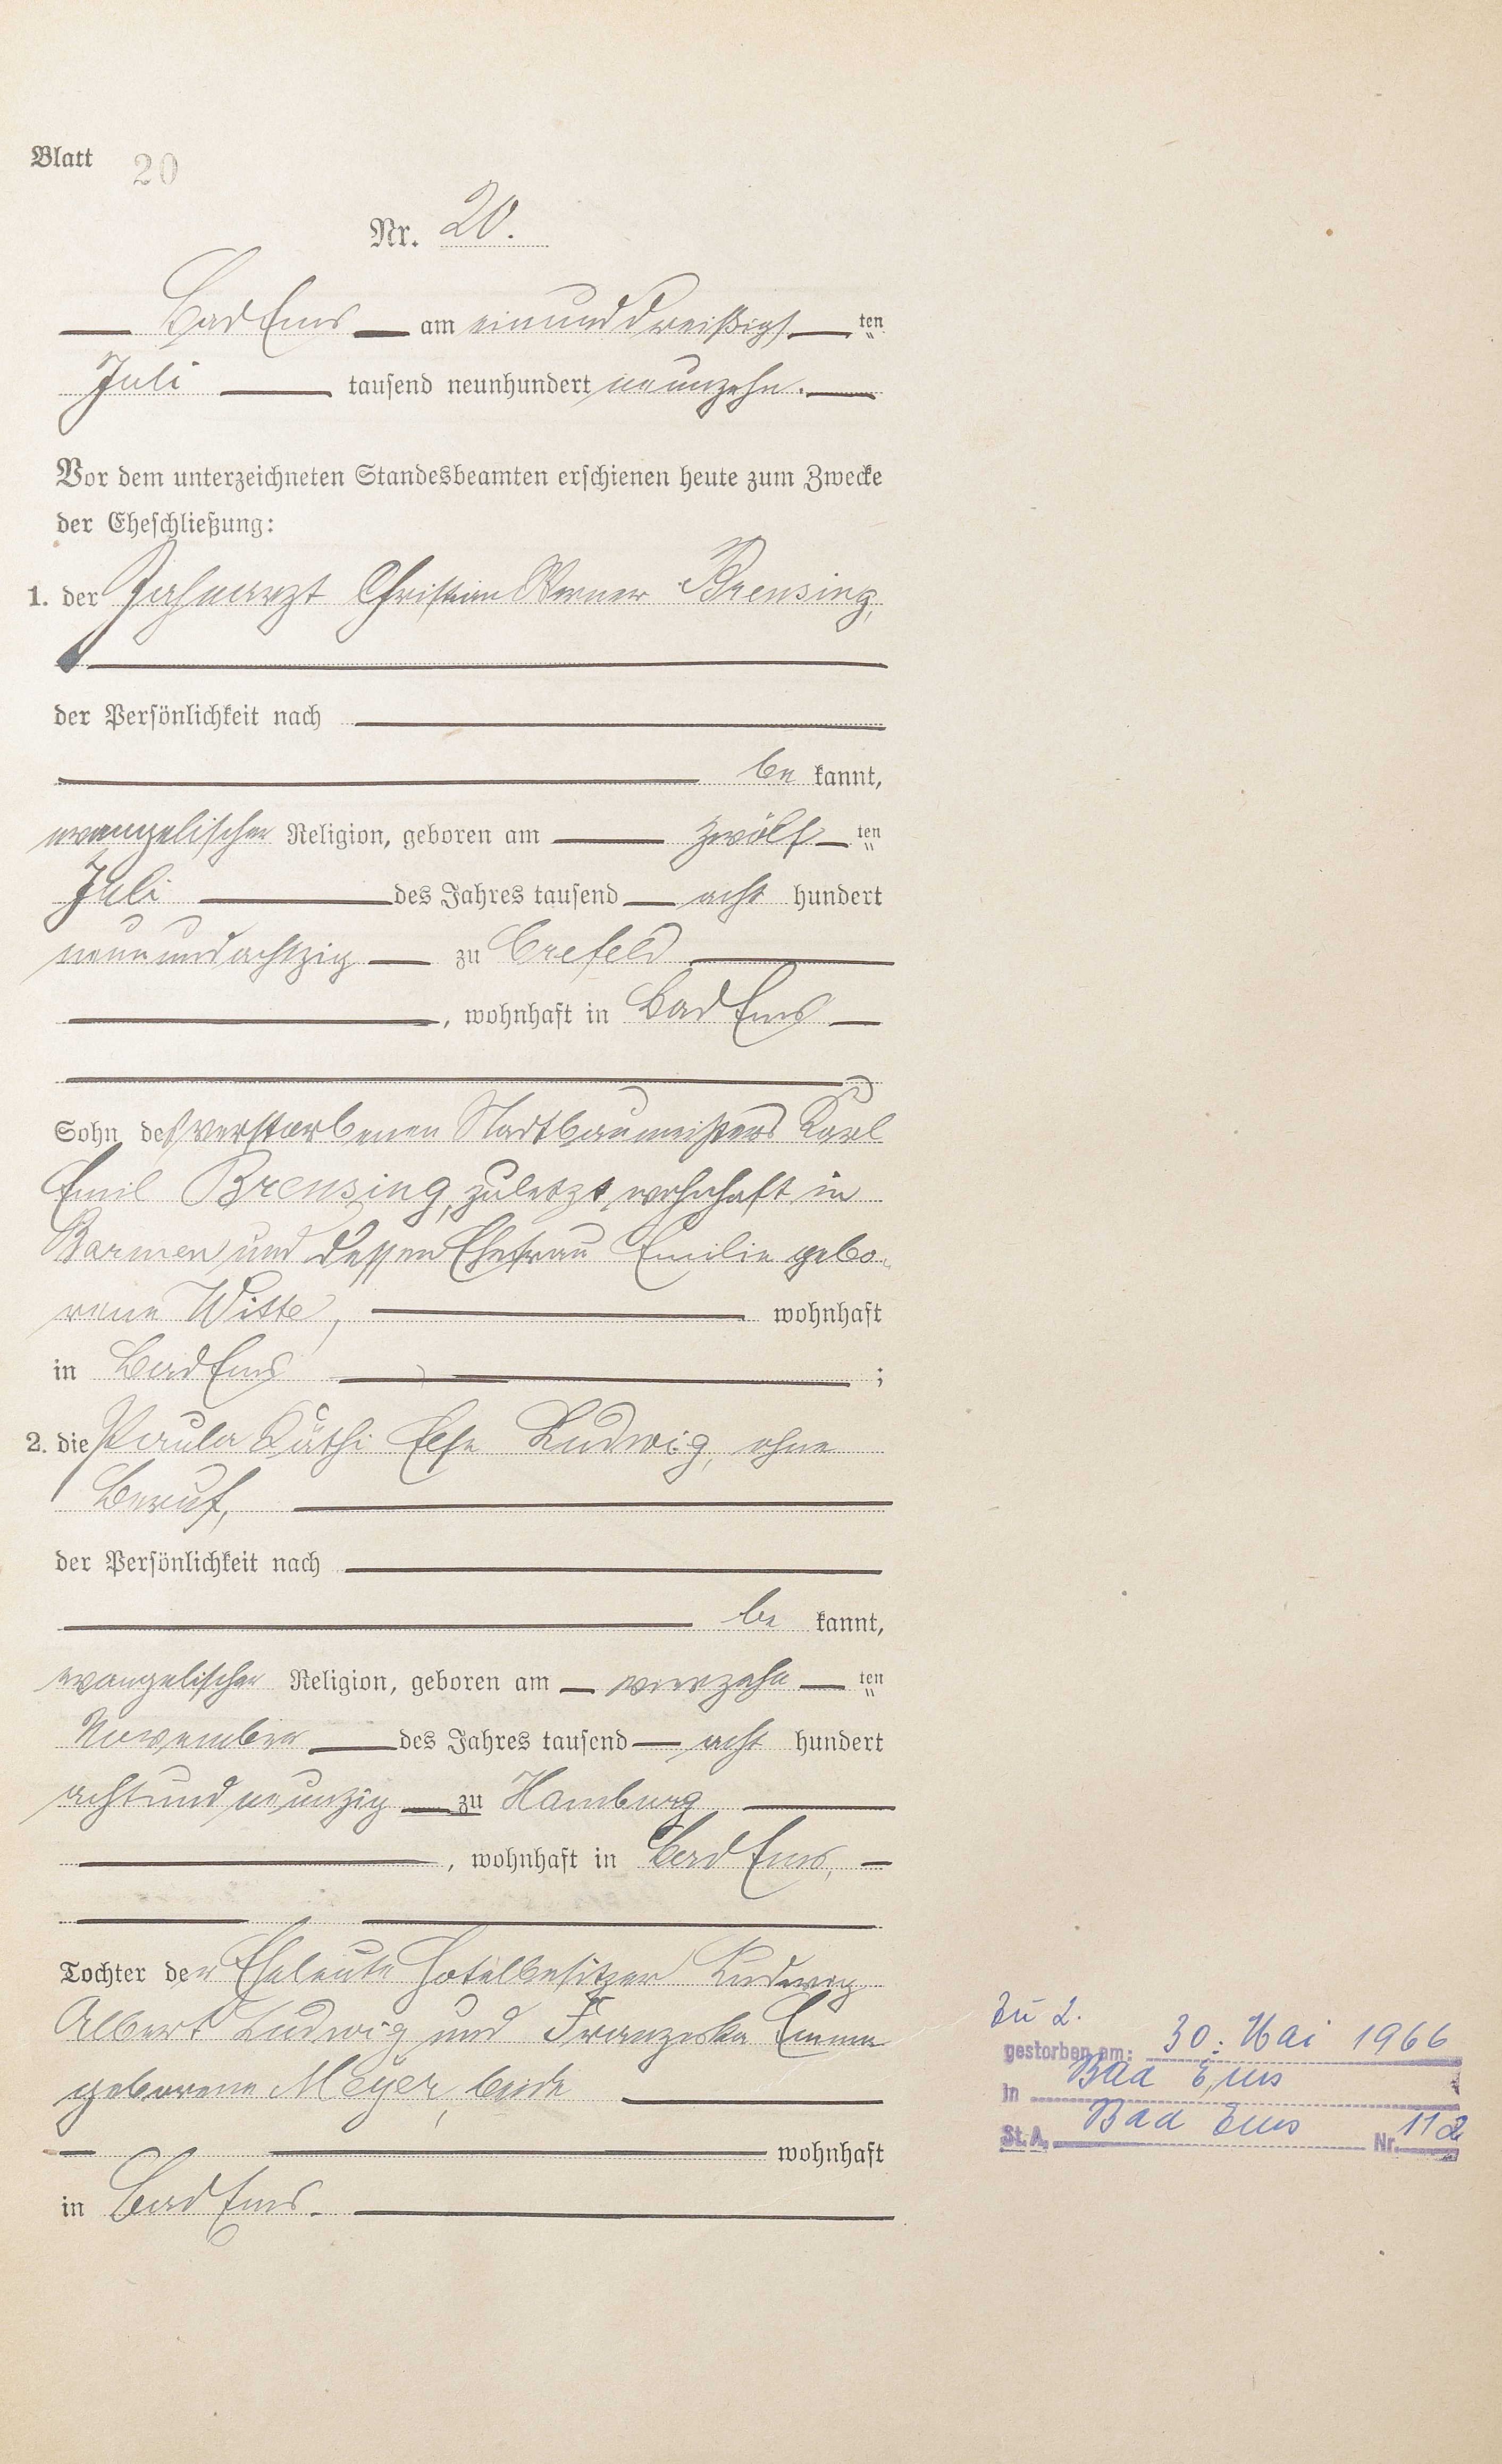 Blatt 20
Nr. 20.
Bad Ems am einunddreißigs ten
Juli tausend neunhundert neunzehn.
Vor dem unterzeichneten Standesbeamten erschienen heute zum Zwecke
der Eheschließung:
1. der Zahnarzt Christian Werner Brensing,
der Persönlichkeit nach
be kannt,
evangelischer Religion, geboren am zwölf ten
Juli des Jahres tausend acht hundert
neunundachtzig zu Crefeld
, wohnhaft in Bad Ems
Sohn des verstorbenen Stadtbaumeisters Karl
Emil Brensing, zuletzt wohnhaft in
Barmen und dessen Ehefrau Emilie gebo-
rene Witte, wohnhaft
in Bad Ems ;
2. die Paula Käthi Else Ludwig, ohne
Beruf,
der Persönlichkeit nach
be kannt,
evangelischer Religion, geboren am vierzehn ten
November des Jahres tausend acht hundert
achtundneunzig zu Hamburg
, wohnhaft in Bad Ems,
Tochter der Eheleute Hotelbesitzer Ludwig
Albert Ludwig und Franziska Emma
geborene Meyer, beide
wohnhaft
in Bad Ems.
Zu 2.
gestorben am: 30. Mai 1966
in Bad Ems
St. A. Bad Ems Nr. 112